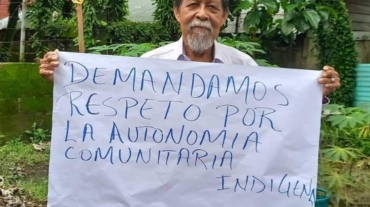 DEMANDAMOS
RESPETO POR
LA AUTONOMIA
COMUNITARIA
INDIGENA